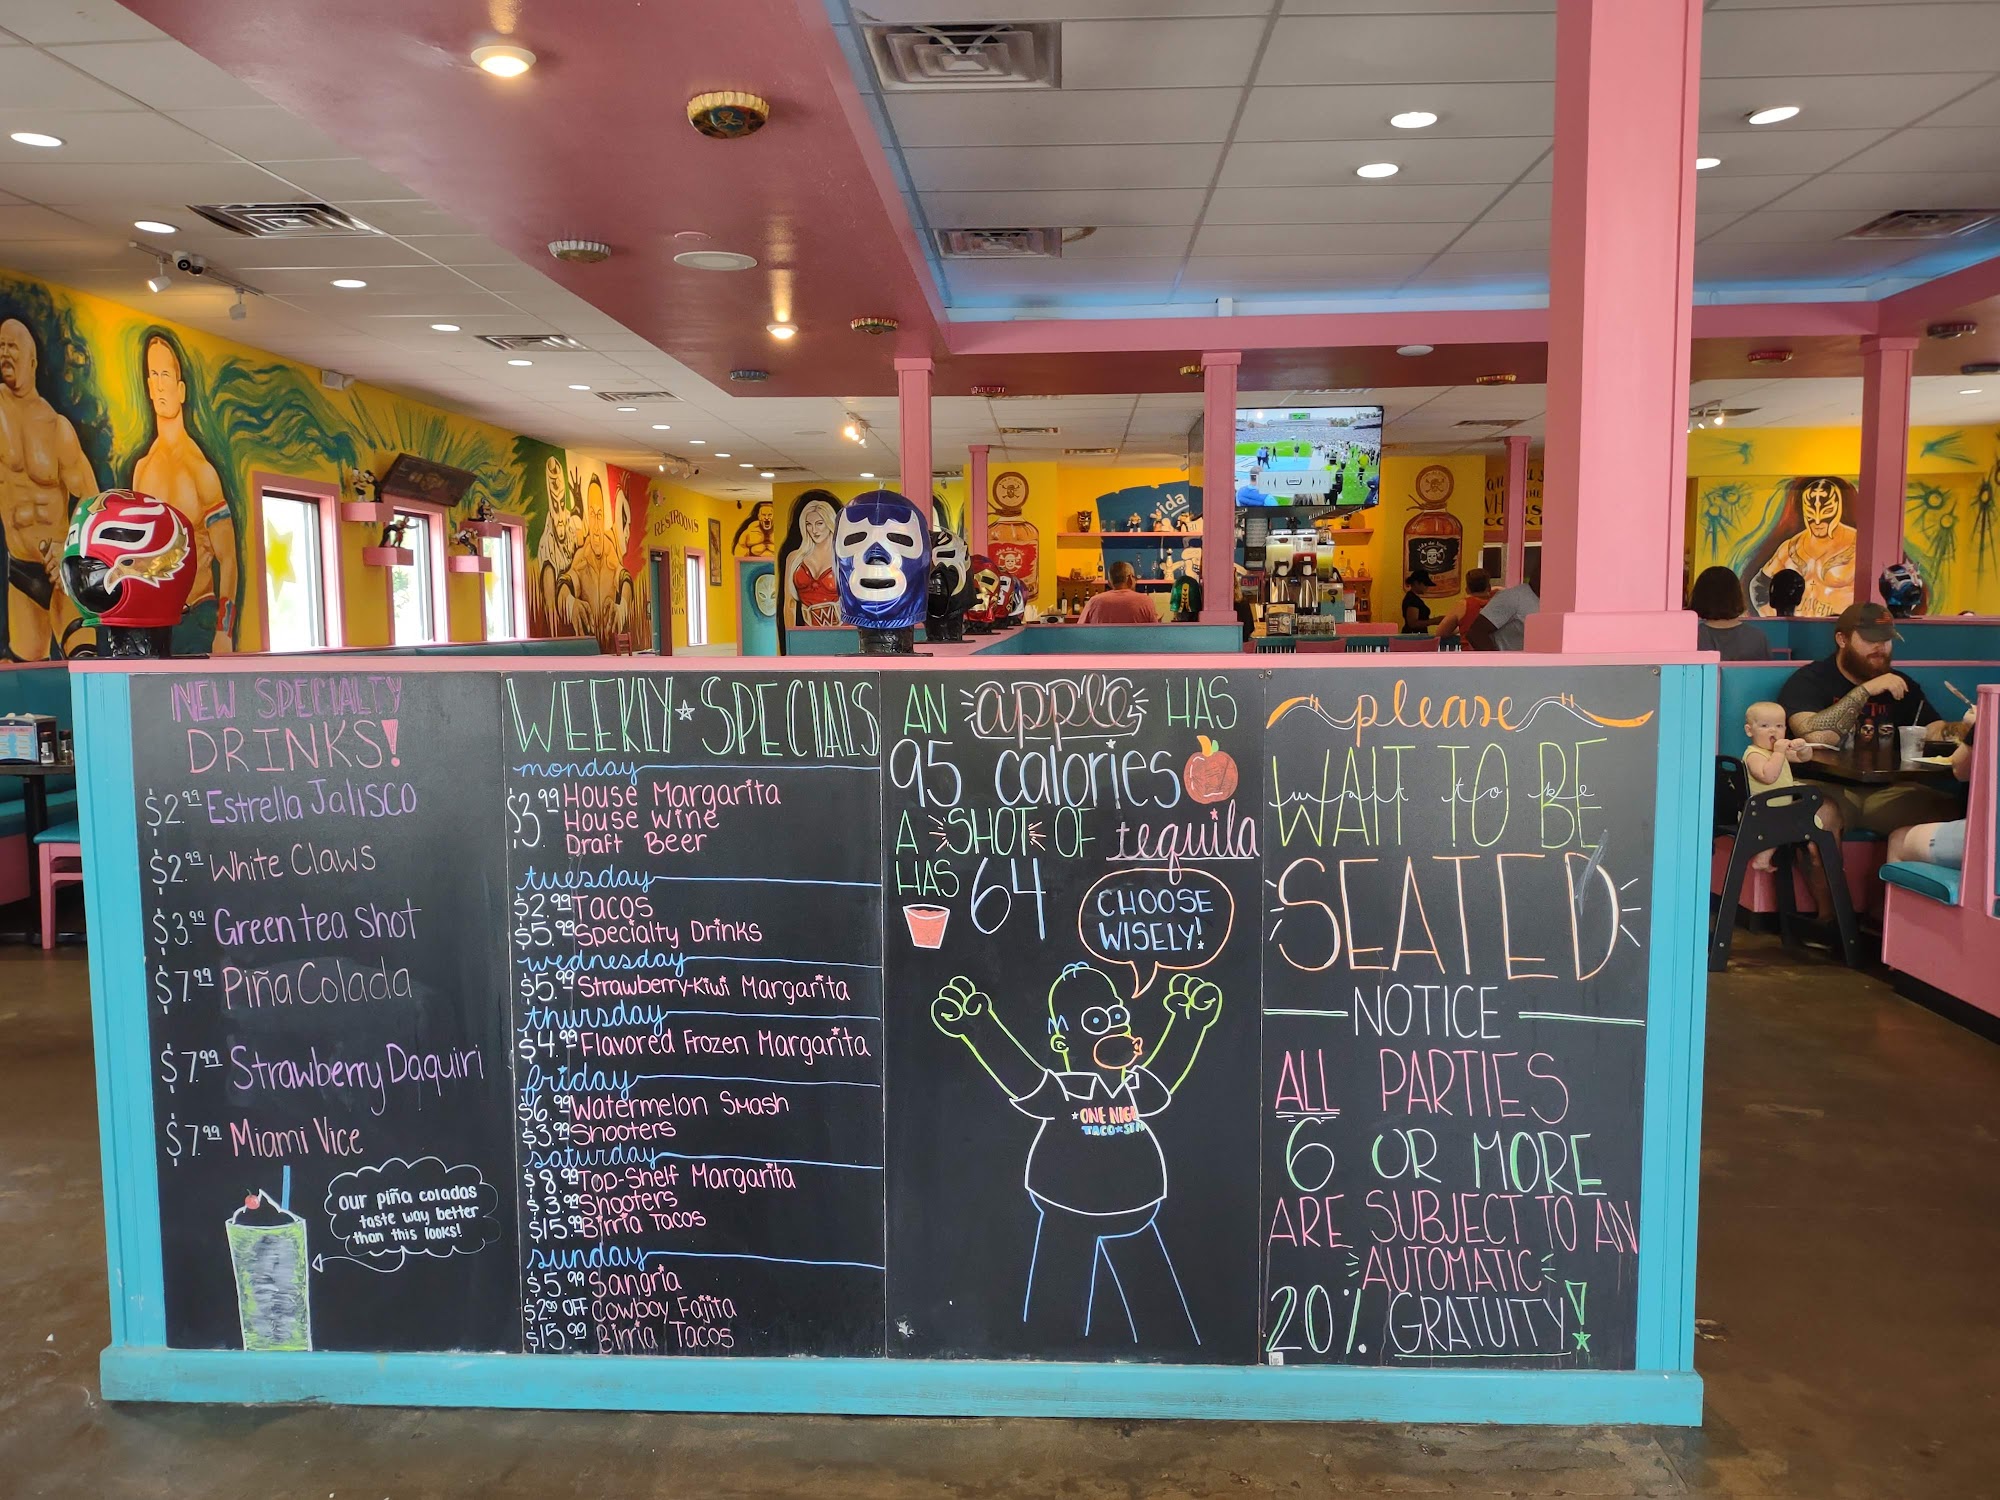 NEW SPECIALTY
DRINKS!
$2.99 Estrella Jalisco
$2.99 White Claws
$3.99 Green tea shot
$7.99 Piña Colada
$7.99 Strawberry Daquiri
$7.99 Miami Vice
our piña coladas
taste way better
than this looks!
WEEKLY SPECIALS
monday
$3.99 House Margarita
House Wine
Draft Beer
tuesday
$2.99 Tacos
$5.99 Specialty Drinks
wednesday
$5.99 Strawberry-Kiwi Margarita
thursday
$4.99 Flavored Frozen Margarita
friday
$6.99 Watermelon Smash
$3.99 Shooters
saturday
$8.99 Top-Shelf Margarita
$3.99 Shooters
$15.99 Birria Tacos
sunday
$5.99 Sangria
$2.00 OFF Cowboy Fajita
$15.99 Birria Tacos
AN apple HAS
95 calories
A SHOT OF tequila
HAS 64
CHOOSE
WISELY!
ONE NIGH
TACO STA
please
WAIT TO BE
wait to be
SEATED
NOTICE
ALL PARTIES
6 OR MORE
ARE SUBJECT TO AN
AUTOMATIC
20% GRATUITY!
RESTROOMS
vida